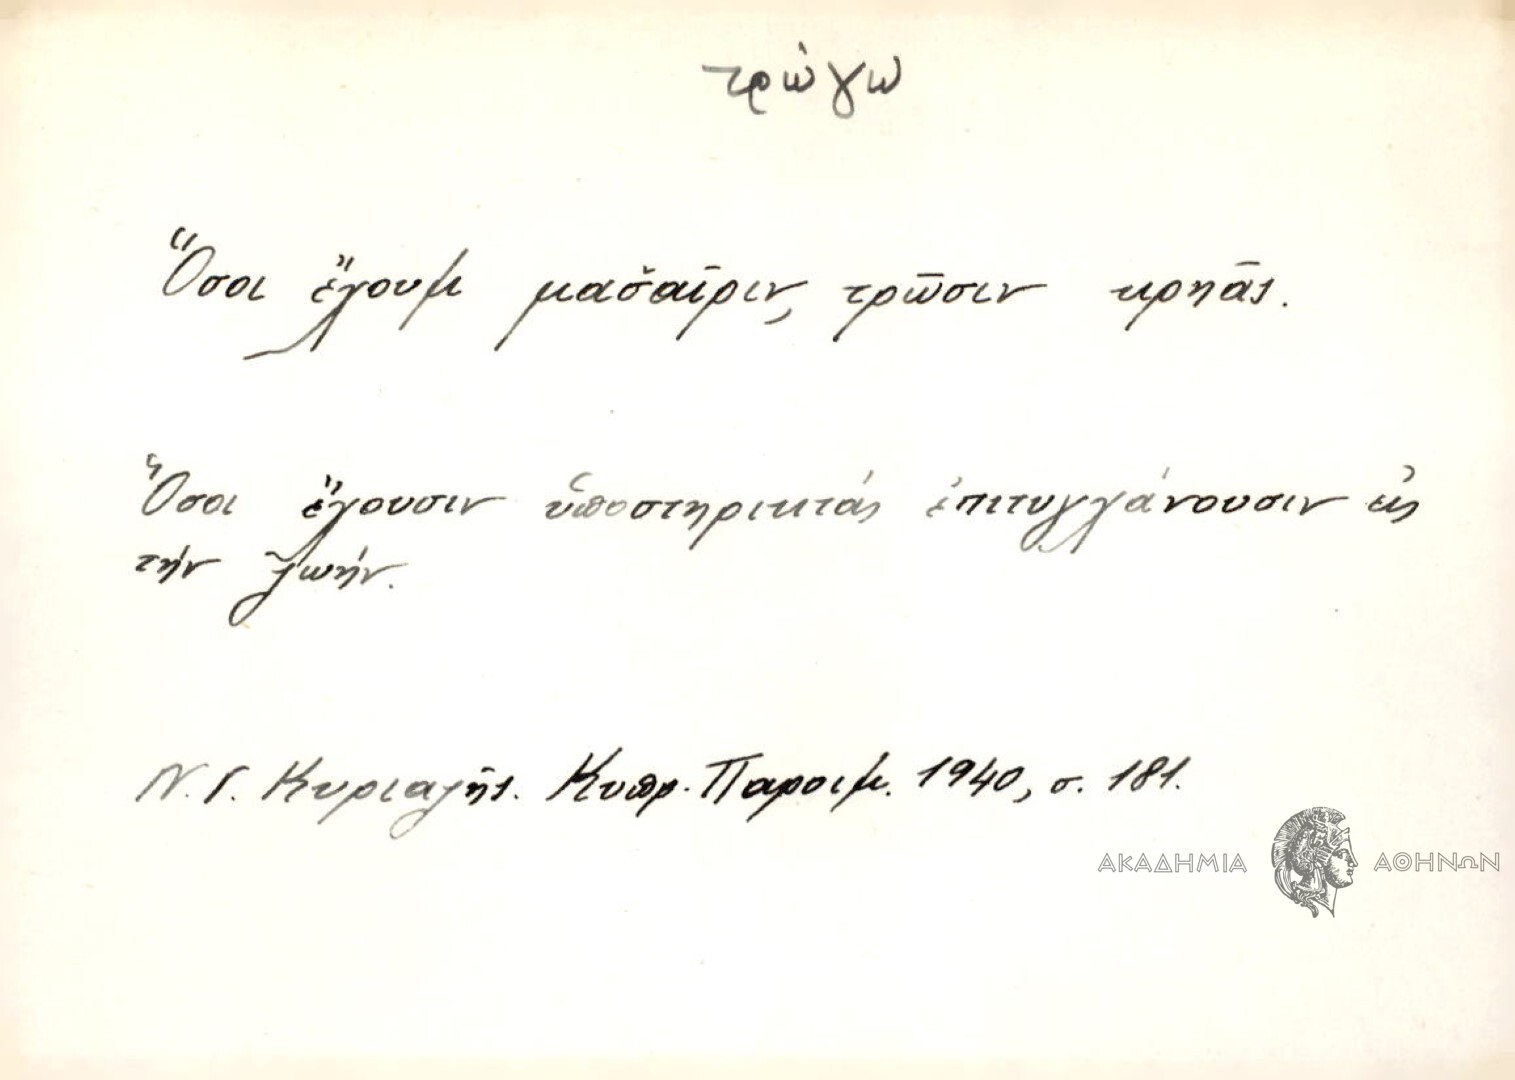 τρώγω
Ὅσοι ἔχουμ μασ̌αῖριν, τρῶσιν κρηᾶς.
Ὅσοι ἔχουσιν ὑποστηρικτάς ἐπιτυγχάνουσιν εἰς
τήν ζωήν.
Ν. Γ. Κυριαζῆς. Κυπρ. Παροιμ. 1940, σ. 181.
ΑΚΑΔΗΜΙΑ ΑΘΗΝΩΝ